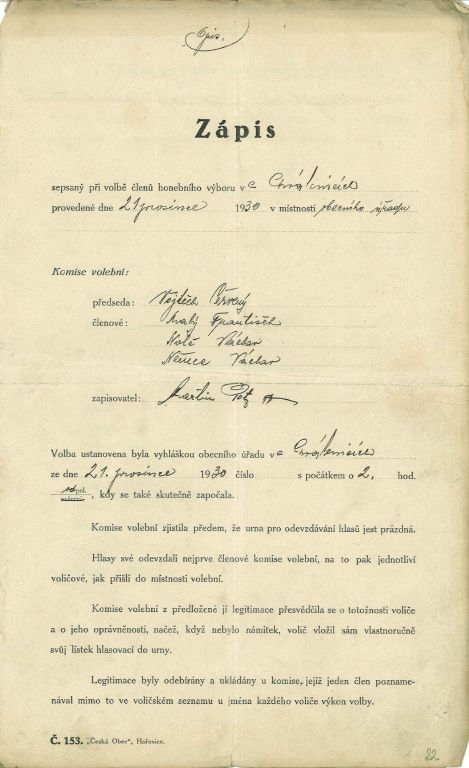 Opis.
Zápis
sepsaný při volbě členů honebního výboru v
provedené dne 21 prosince 1930 v místnosti obecního úřadu
Komise volební:
předseda: Vojtěch Červený
členové: Malý František
Václav
Němec Václav
zapisovatel: Martin
Volba ustanovena byla vyhláškou obecního úřadu v
ze dne 21. prosince 1930 číslo s počátkem o 2. hod.
odpol., kdy se také skutečně započala.
Komise volební zjistila předem, že urna pro odevzdávání hlasů jest prázdná.
Hlasy své odevzdali nejprve členové komise volební, na to pak jednotliví
voličové, jak přišli do místnosti volební.
Komise volební z předložené jí legitimace přesvědčila se o totožnosti voliče
a o jeho oprávněnosti, načež, když nebylo námitek, volič vložil sám vlastnoručně
svůj lístek hlasovací do urny.
Legitimace byly odebírány a ukládány u komise, jejíž jeden člen pozname-
nával mimo to ve voličském seznamu u jména každého voliče výkon volby.
Č. 153. „Česká Obec", Hořovice.
22